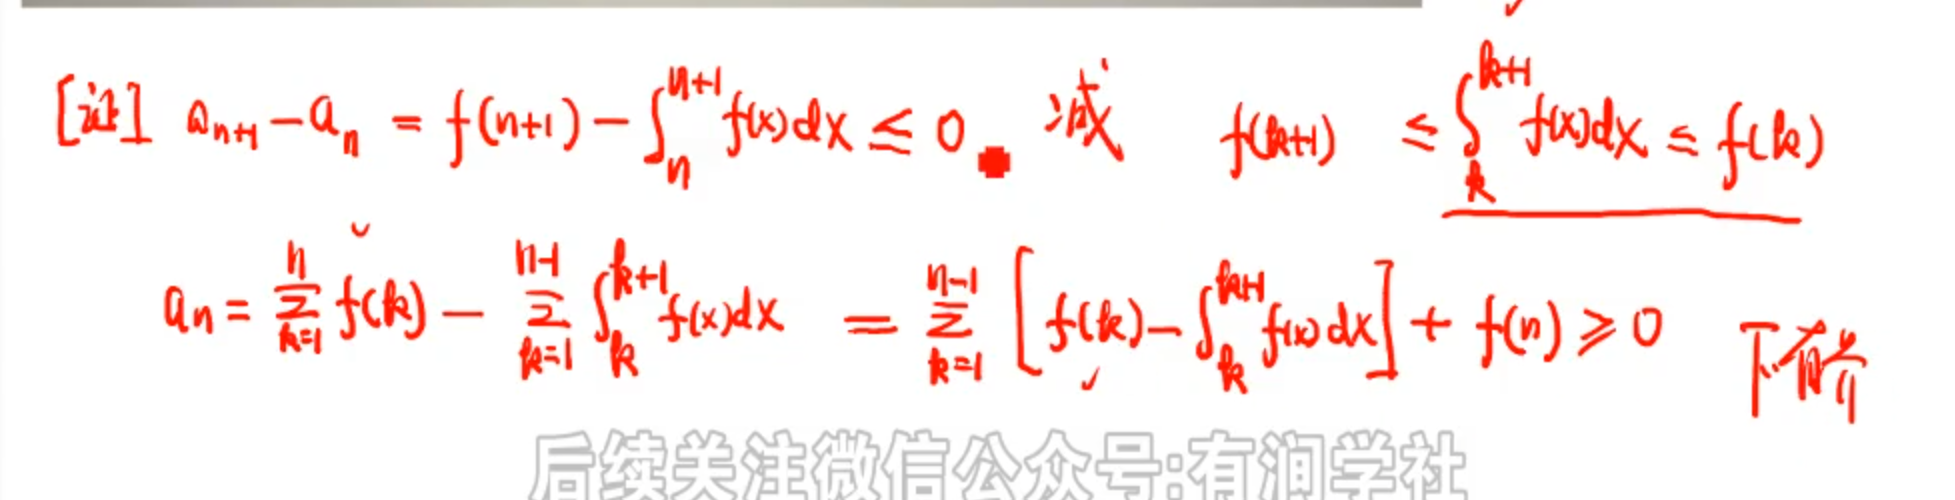 [证] a_{n+1} - a_n = f(n+1) - ∫_n^{n+1} f(x)dx ≤ 0. 减 f(k+1) ≤ ∫_k^{k+1} f(x)dx ≤ f(k)
a_n = ∑_{k=1}^{n} f(k) - ∑_{k=1}^{n-1} ∫_k^{k+1} f(x)dx = ∑_{k=1}^{n-1} [f(k) - ∫_k^{k+1} f(x)dx] + f(n) ≥ 0 下有界
后续关注微信公众号:有润学社